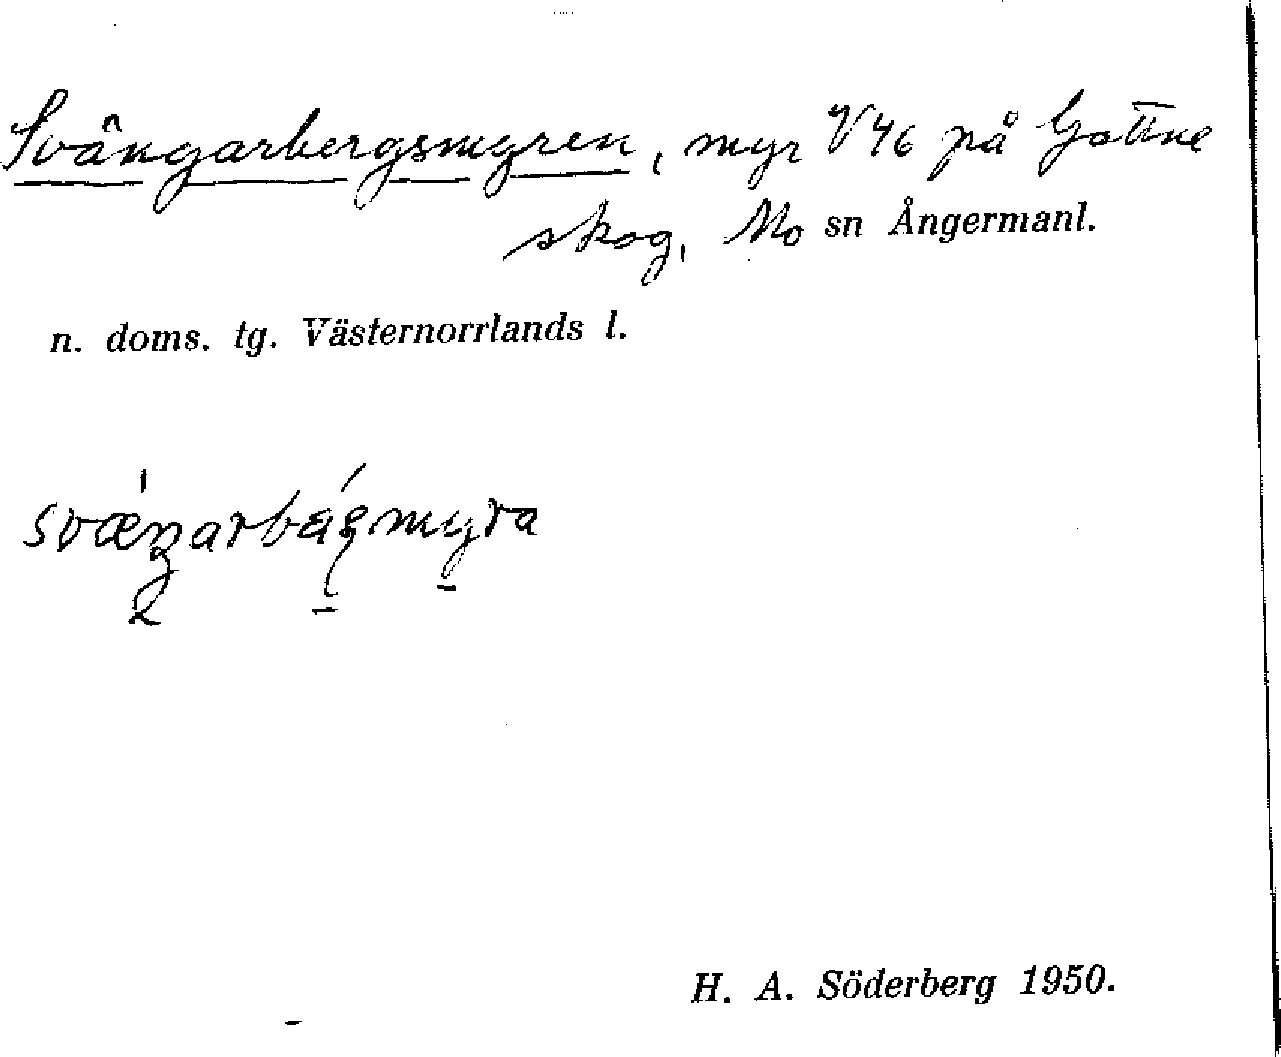 Svängarbergsmyren, myr V46 på Gottne
skog, Mo sn Ångermanl.
n. doms. tg. Västernorrlands l.
H. A. Söderberg 1950.